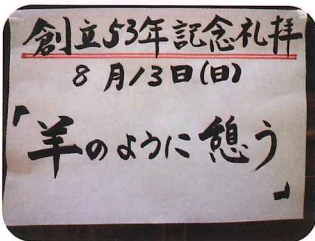 創立53年記念礼拝
8月13日(日)
「羊のように憩う」